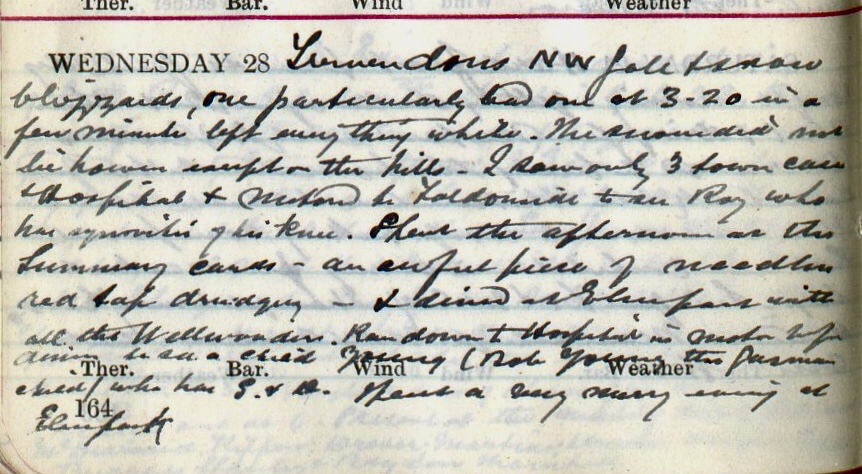 Ther. Bar. Wind Weather
WEDNESDAY 28 Tremendous NW gale & snow
blizzards, one particularly bad one at 3-20 in a
few minutes left everything white. The snow did not
lie however except on the hills - I saw only 3 town cases
& Hospital & motored to to see Roy who
has synovitis of his knee. Spent the afternoon at the
Summary cards - an awful piece of needless
red tape drudgery - & dined at with
all the . Ran down to Hospital in motor before
dinner to see a child Young (Rob Young the
Ther. Bar. Wind Weather
child) who has S. & D. Spent a very merry evening at
164